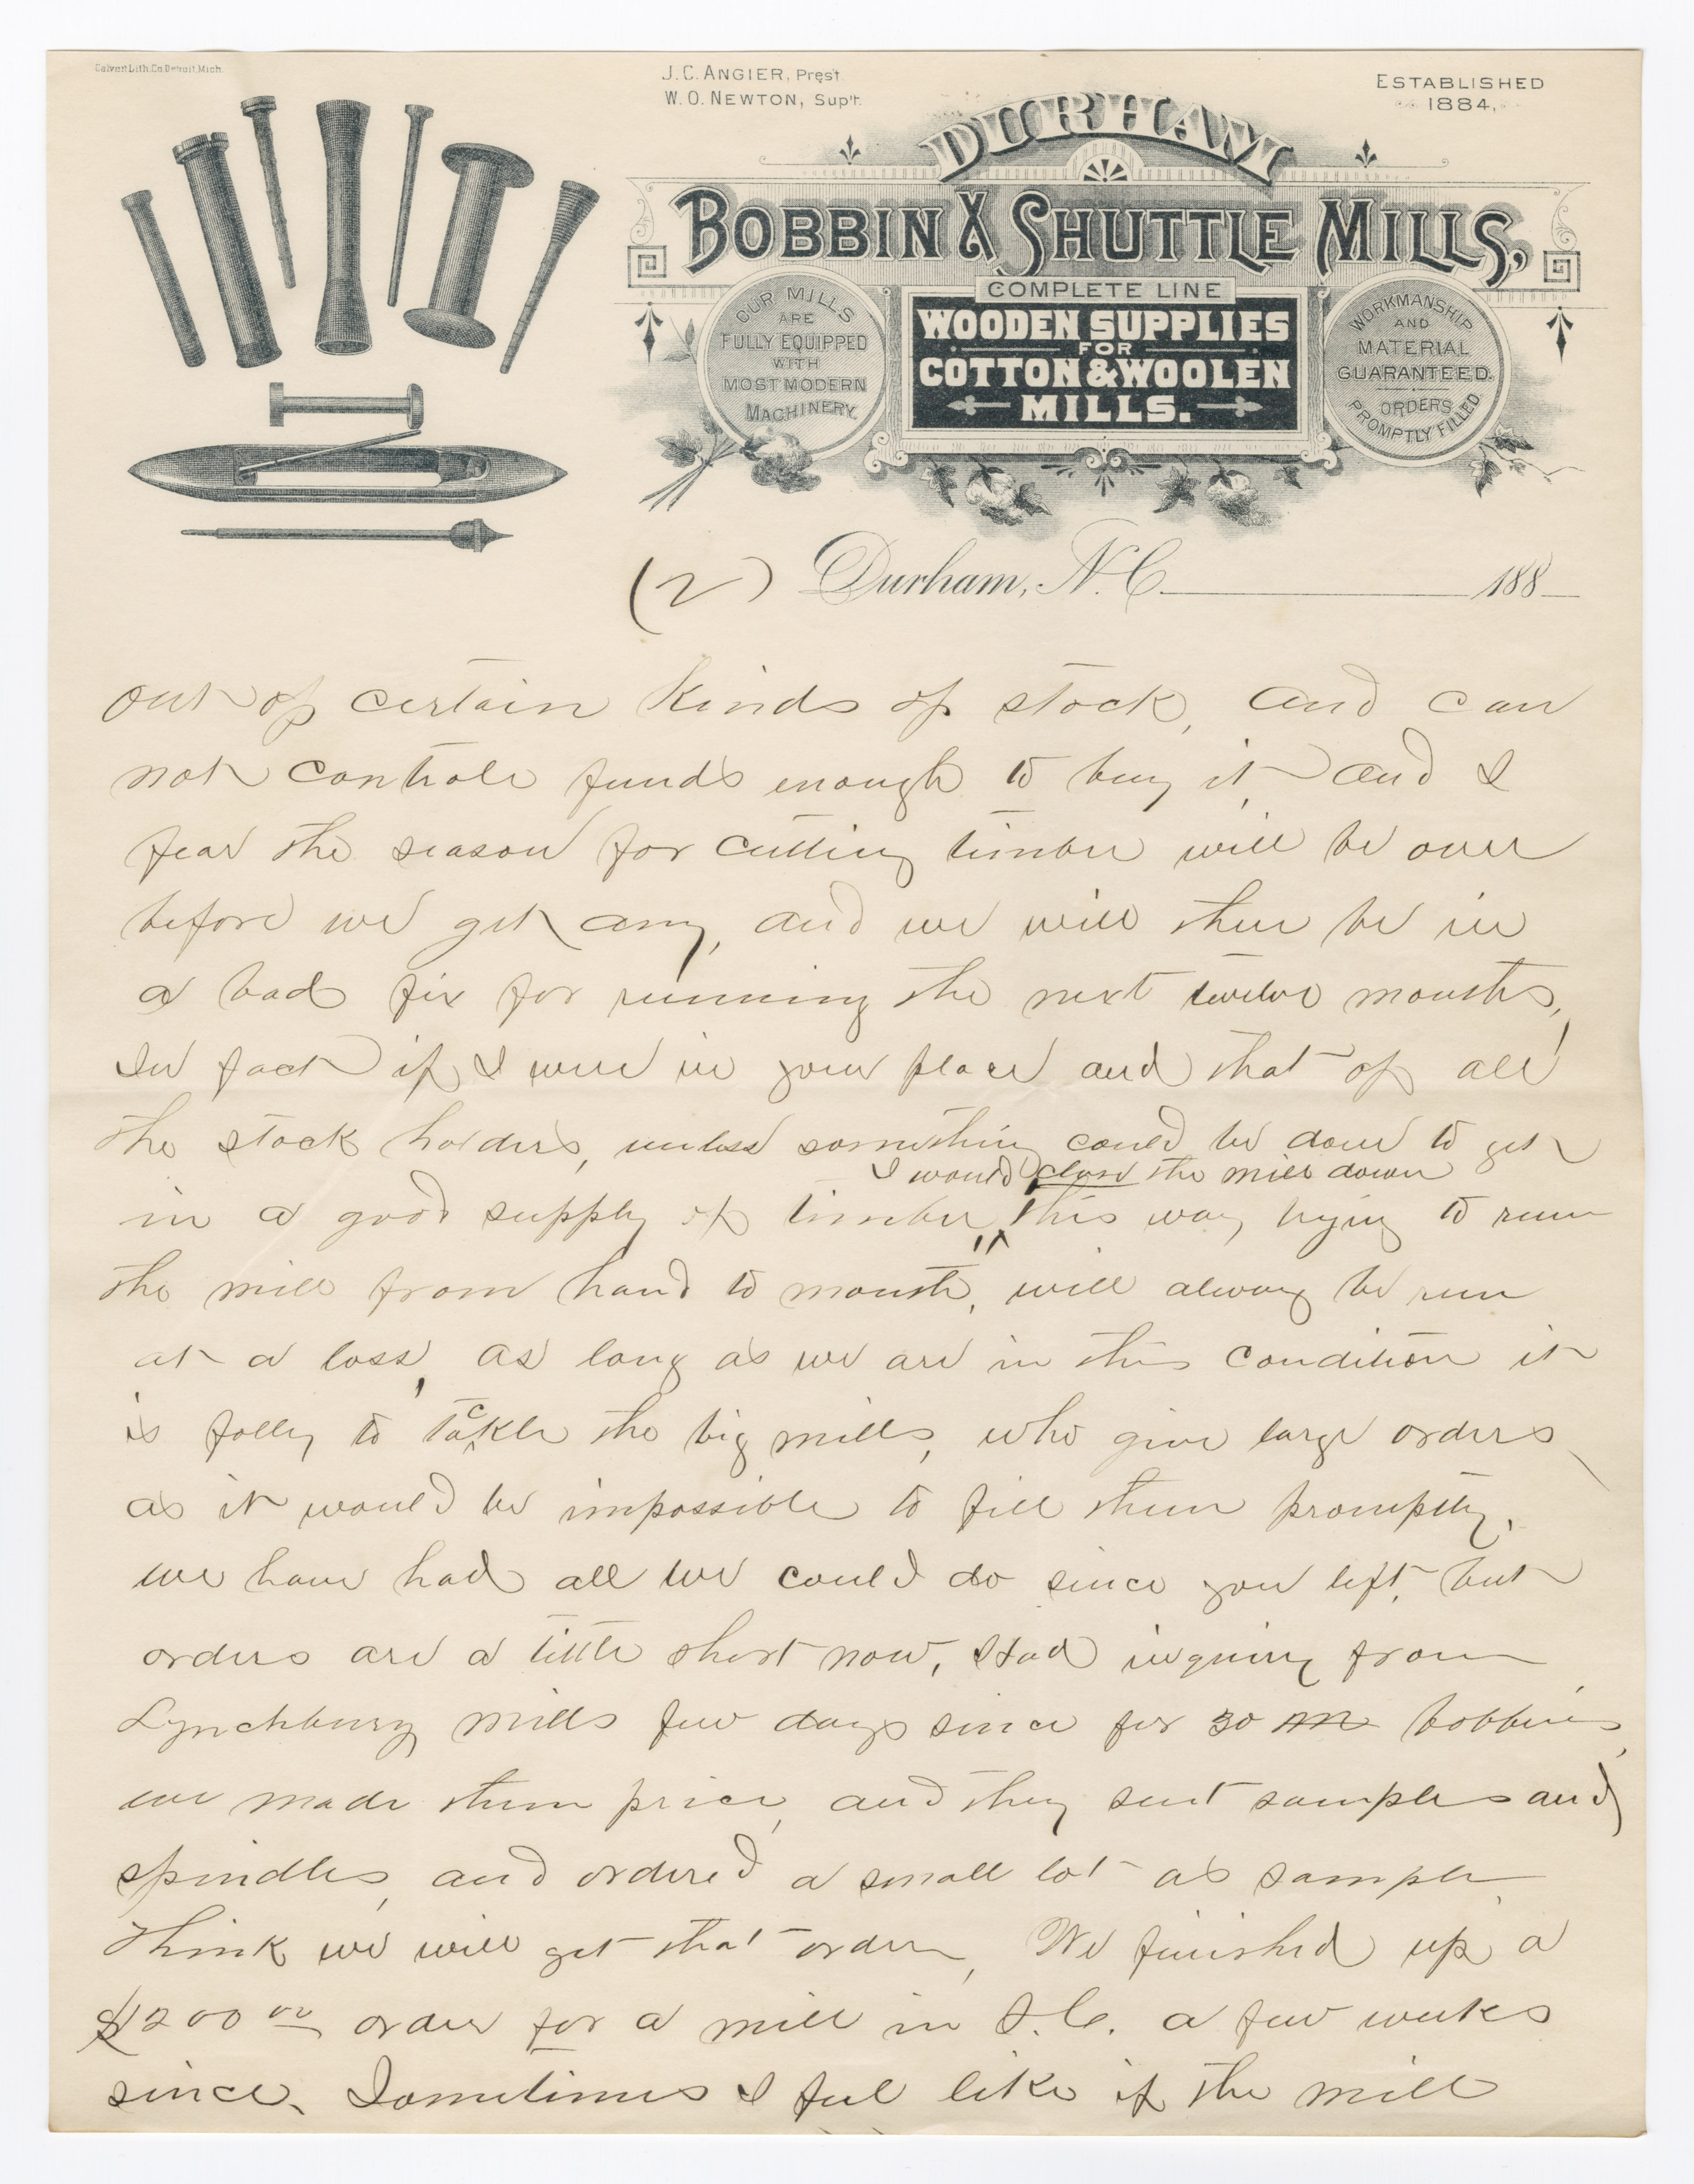 Calvert Lith. Co. Detroit, Mich.
J. C. ANGIER, Prest.
W. O. NEWTON, Sup't.
ESTABLISHED
1884.
DURHAM
BOBBIN & SHUTTLE MILLS,
OUR MILLS
ARE
FULLY EQUIPPED
WITH
MOST MODERN
MACHINERY.
COMPLETE LINE
WOODEN SUPPLIES
FOR
COTTON & WOOLEN
MILLS.
WORKMANSHIP
AND
MATERIAL
GUARANTEED.
ORDERS
PROMPTLY FILLED
(2) Durham, N.C. 188
out of certain kinds of stock, and can
not controle funds enough to buy it, and I
fear the season for cutting timber will be over
before we get any, and we will then be in
a bad fix for running the next twelve months,
In fact if I were in your place and that of all
the stock holders, unless something could be done to get
I would close the mill down
in a good supply of timber, this way trying to run
the mill from hand to mouth, will always be run
at a loss, as long as we are in this condition it
is folly to tackle the big mills, who give large orders
as it would be impossible to fill them promptly.
we have had all we could do since you left, but
orders are a little short now, Had inquiry from
Lynchburg mills few days since for 30 M bobbins,
we made them price, and they sent samples and
spindles, and ordered a small lot as sample,
think we will get that order, We finished up a
$200 00 order for a mill in S.C. a few weeks
since. Sometimes I feel like if the mill